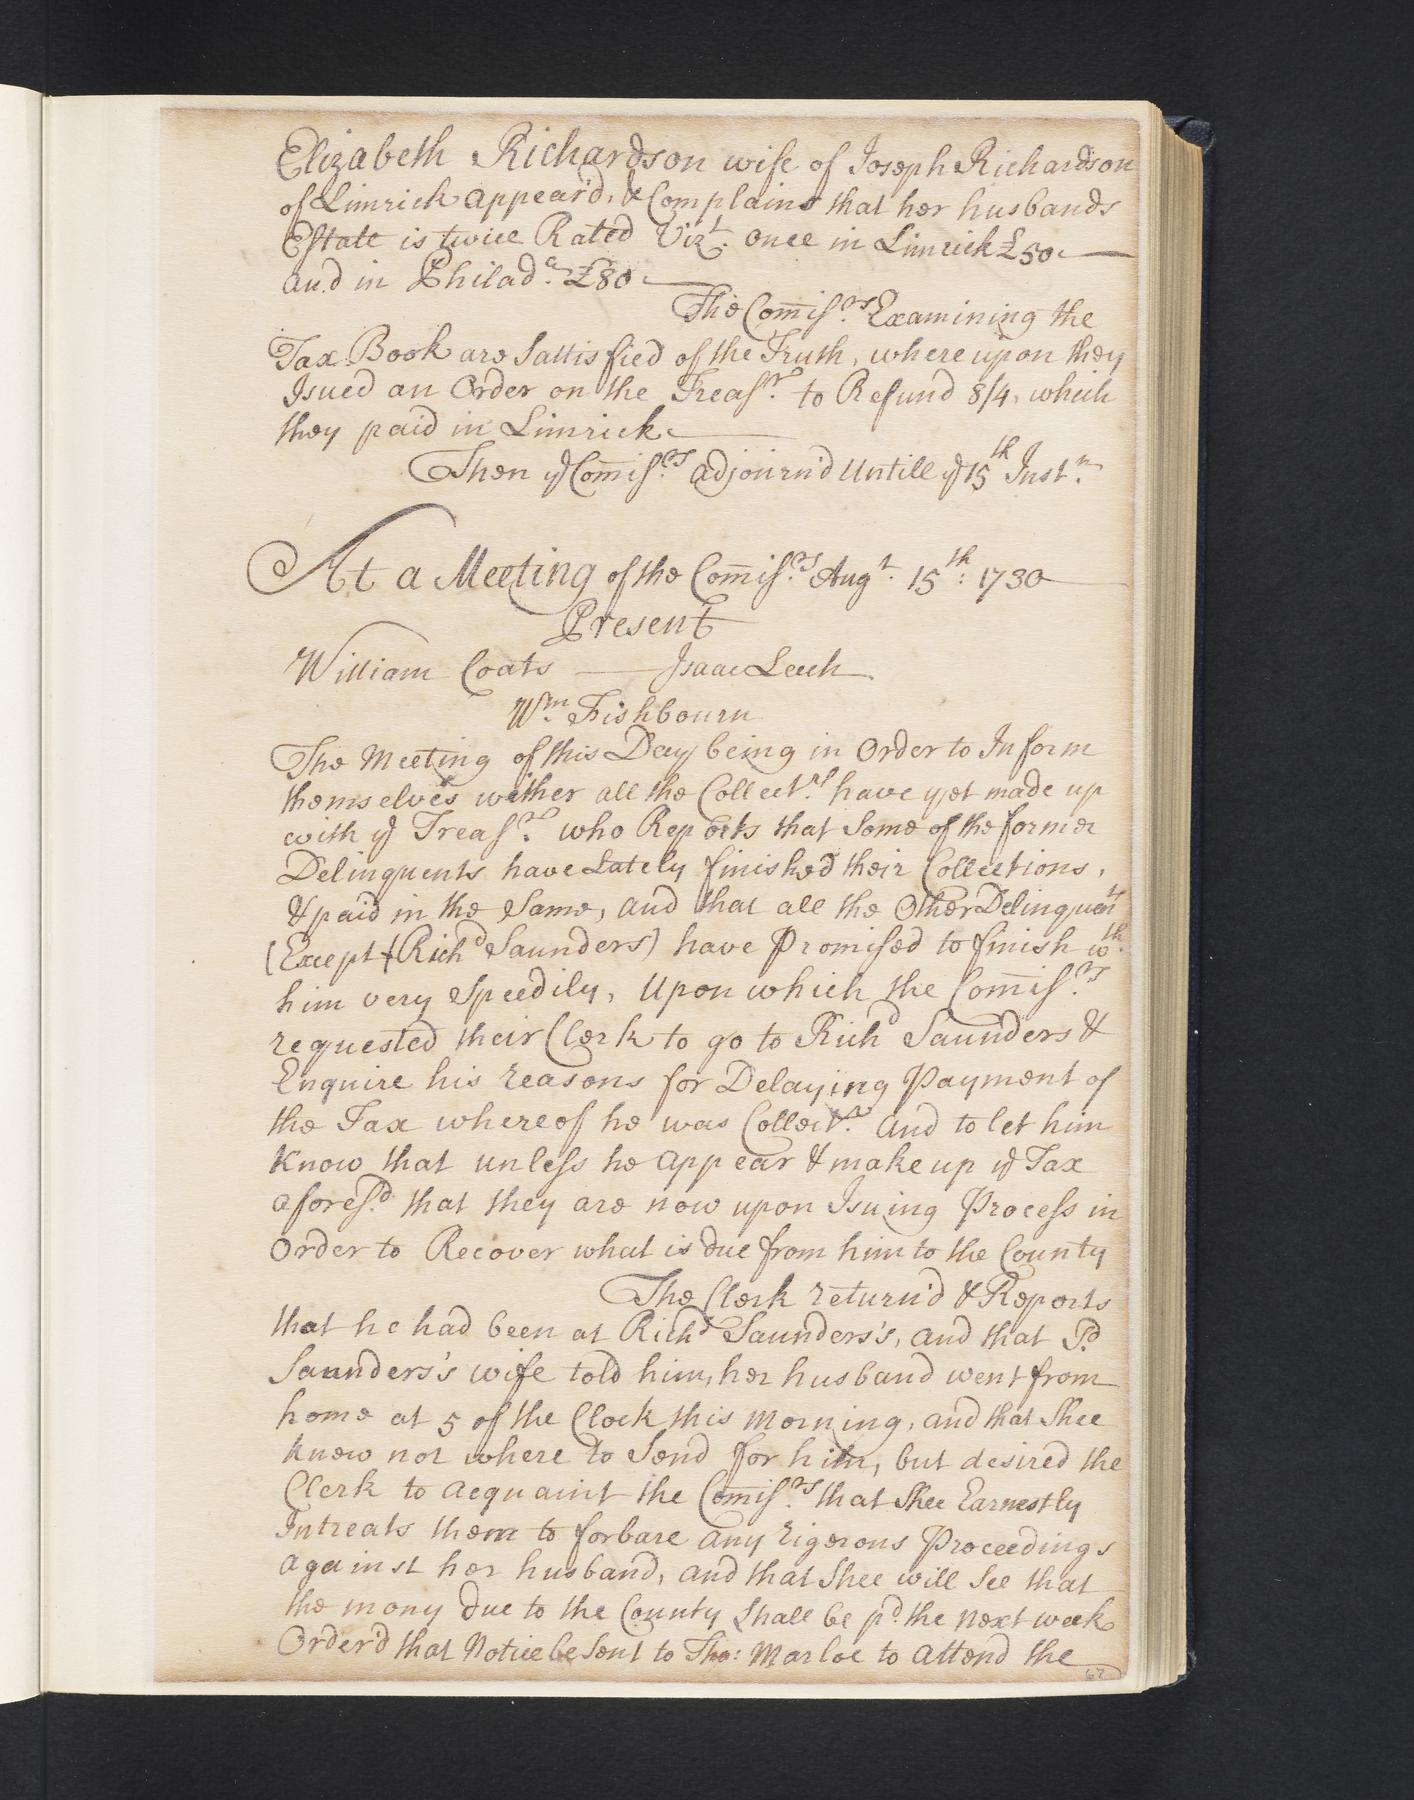 Elizabeth Richardson wife of Joseph Richardson
of Limrick appear'd, & Complains that her husbands
Estate is twice Rated Vizt. once in Limrick £50.
and in Philada. £80.
The Comiss.rs Examining the
Tax Book are Sattisfied of the Truth, whereupon they
Isued an Order on the Treasr. to Refund 8/4, which
they paid in Limrick.
Then ye Comiss.rs adjourn'd Untill ye 15th Instn.
At a Meeting of the Comiss.rs Augt. 15th: 1730
Present
William Coats — Isaac Leech
Wm. Fishbourn
The Meeting of this Day being in Order to Inform
themselves wither all the Collect.rs have yet made up
with ye Treasr. who Reports that Some of the former
Delinquents have Lately finished their Collections,
& paid in the Same, and that all the Other Delinquents
(Except Richd Saunders) have Promised to finish wth.
him very Speedily, Upon which the Comiss.rs
requested their Clerk to go to Richd Saunders &
Enquire his reasons for Delaying Payment of
the Tax whereof he was Collect.r and to let him
Know that unless he appear & make up ye Tax
aforesd. that they are now upon Isuing Process in
Order to Recover what is due from him to the County
The Clerk return'd & Reports
that he had been at Richd Saunders's, and that Sd.
Saunders's wife told him, her husband went from
home at 5 of the Clock this Morning, and that Shee
knew not where to Send for him, but desired the
Clerk to acquaint the Comiss.rs that Shee Earnestly
Intreats them to forbare any rigerous Proceedings
against her husband, and that Shee will See that
the mony due to the County Shall be pd. the next week
Order'd that Notice be Sent to Tho: Marloe to attend the
67